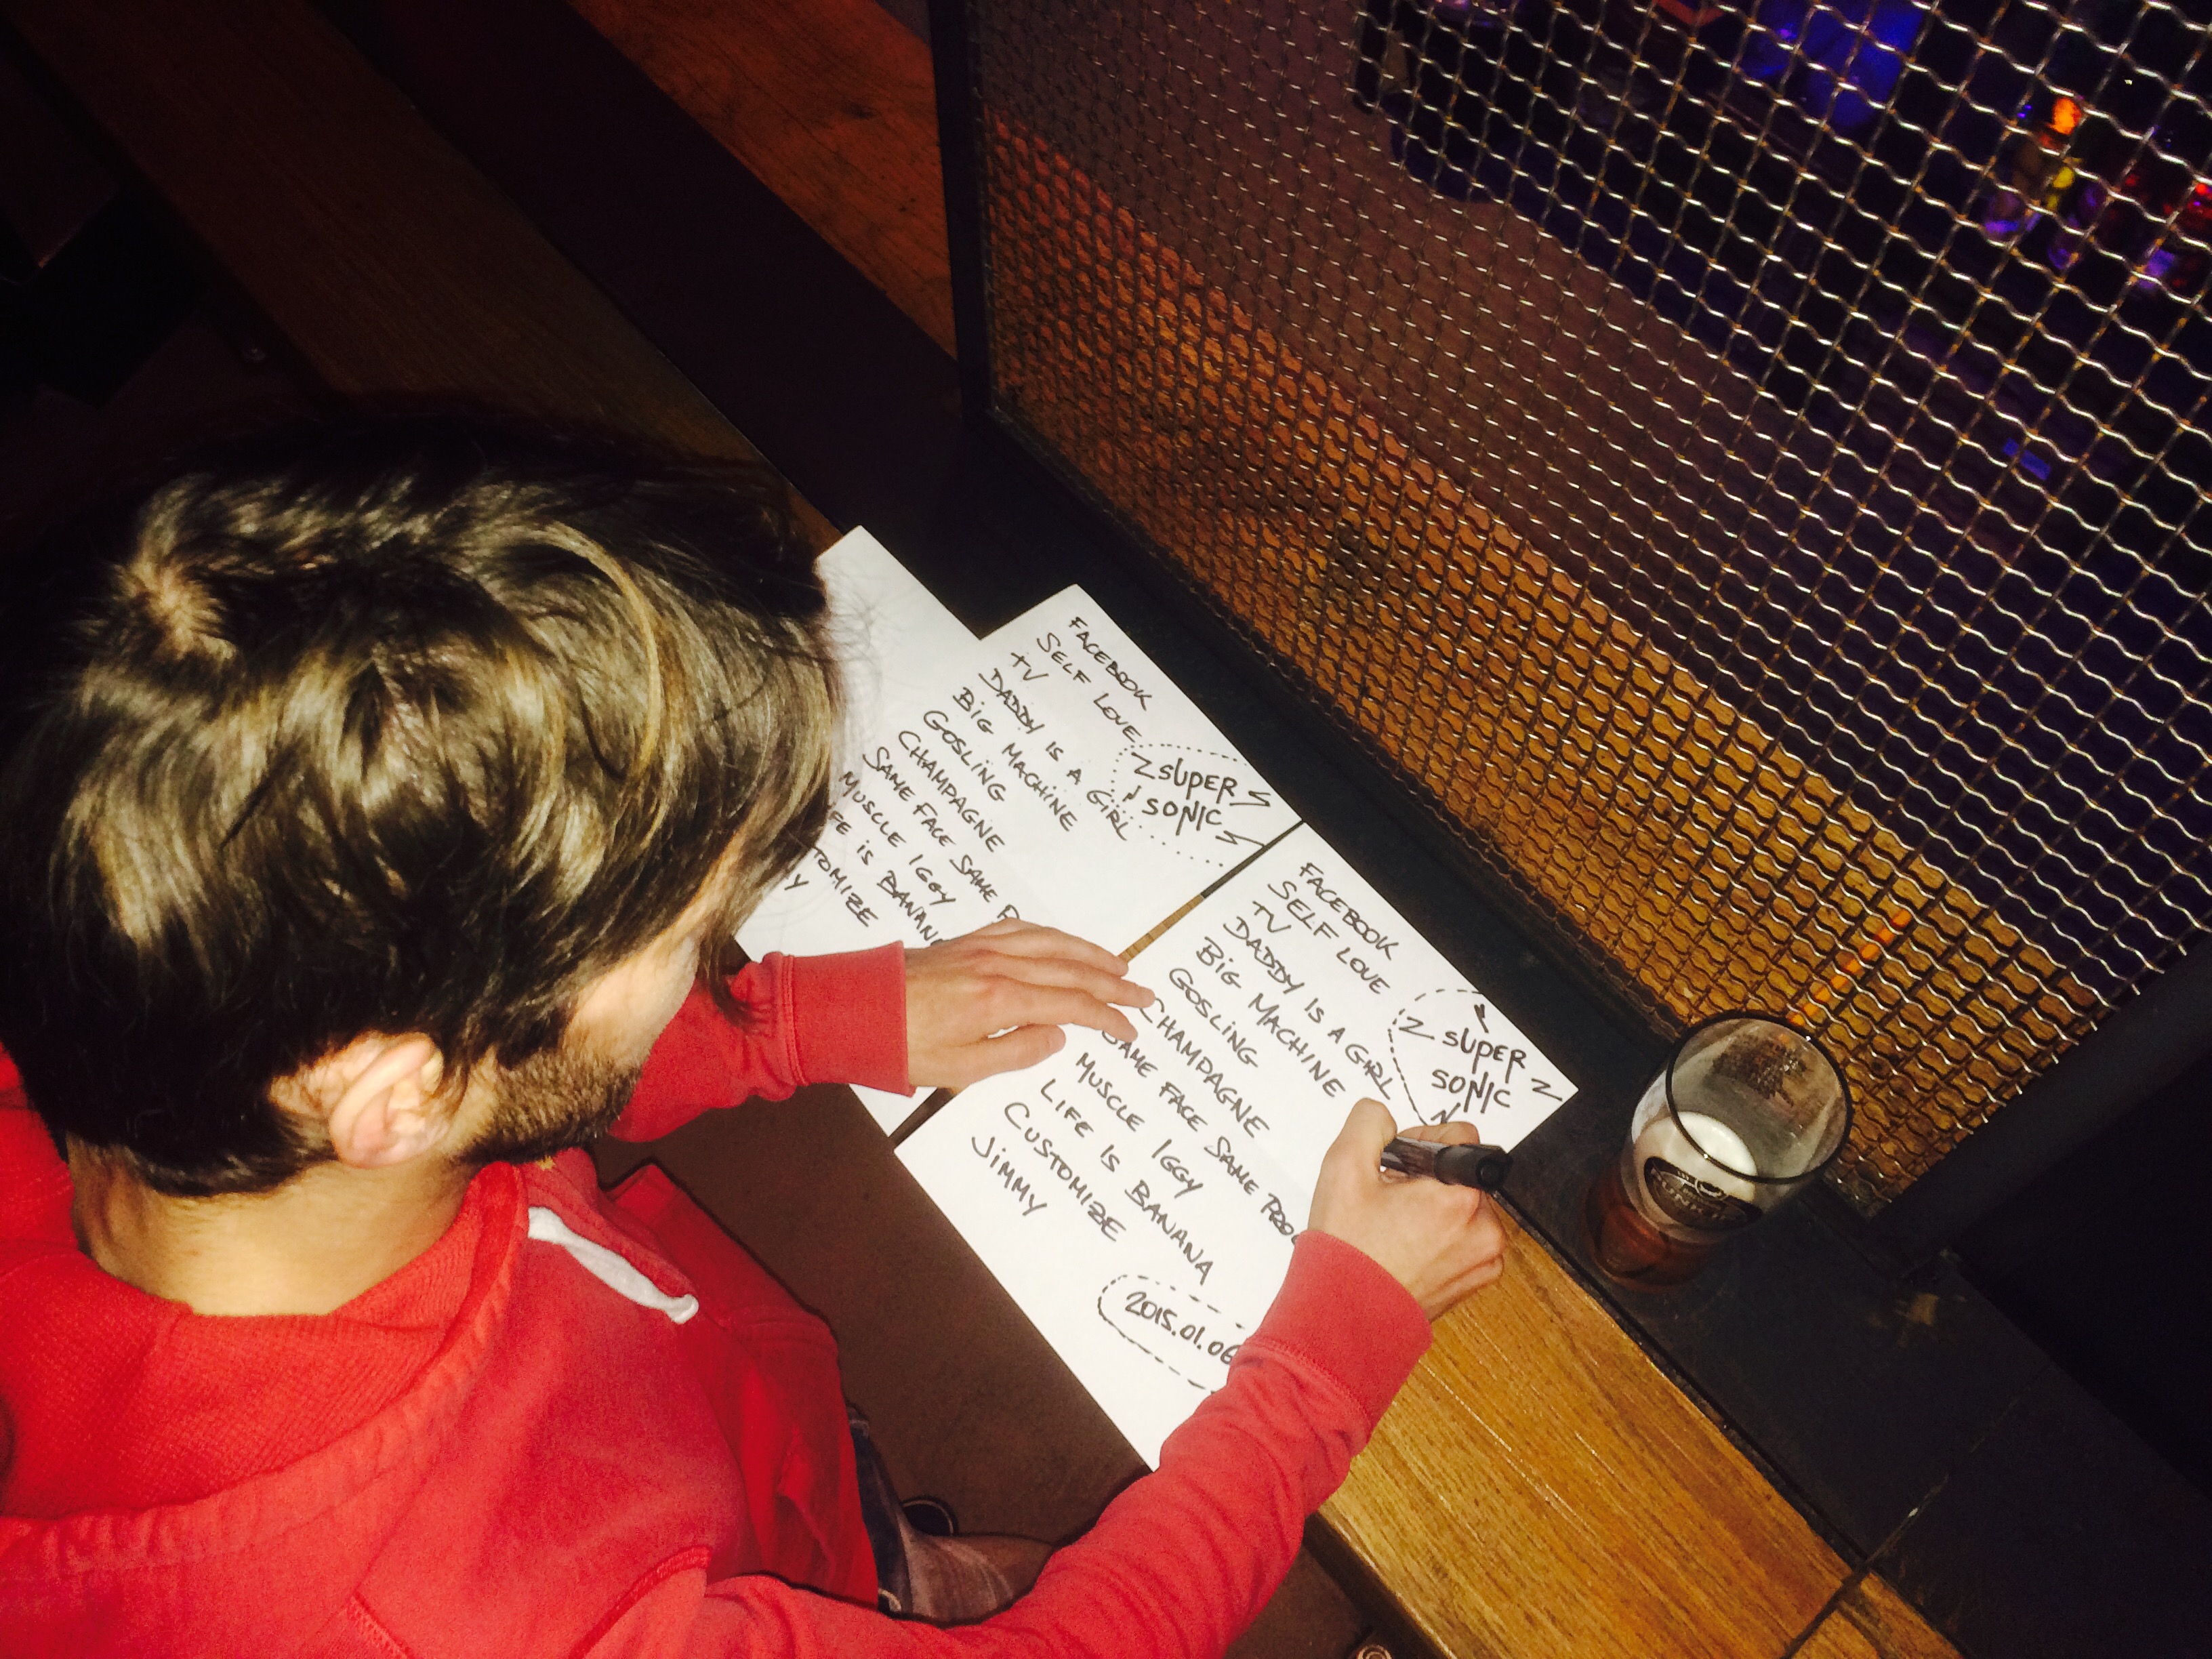 FACEBOOK
SELF LOVE
TV
DADDY IS A GIRL
BIG MACHINE
GOSLING
CHAMPAGNE
SAME FACE SAME
MUSCLE IGGY
IS BANANA
TOMIZE
SUPER
SONIC
FACEBOOK
SELF LOVE
TV
DADDY IS A GIRL
BIG MACHINE
GOSLING
CHAMPAGNE
SAME FACE SAME
MUSCLE IGGY
LIFE IS BANANA
CUSTOMIZE
JIMMY
SUPER
SONIC
2015.01.06